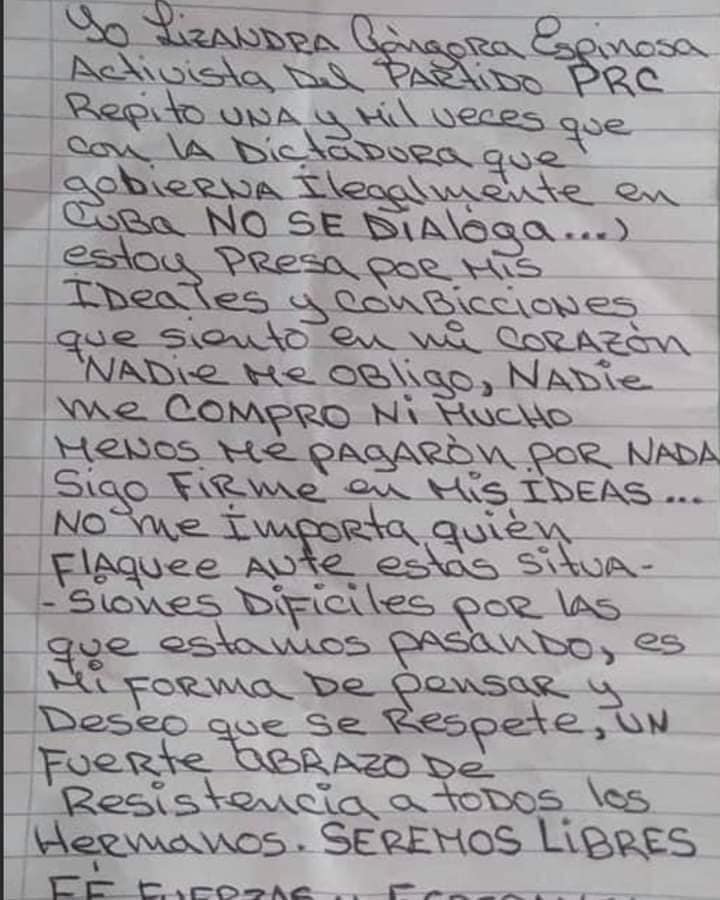 Yo LIZANDRA Góngora Espinosa
Activista Del PARTIDO PRC
Repito UNA y Mil veces que
con LA DictADURA que
gobierNA Ilegalmente en
CuBa NO SE DIAlóga...)
estoy PResa poR Mis
IDeales y conBicciones
que siento en mi CORAZÓN
NADie Me OBligo, NADie
me COMPRO Ni MUCHO
MeNOS Me PAGARÓN POR NADA
Sigo FiRme en Mis IDEAS...
NO me Importa quién
FlAquee ANte estas SituA-
-Siones DiFiciles poR lAS
que estamos pASANDO, es
Mi FORMA De pensar y
Deseo que se Respete, UN
FueRte aBRAZO De
Resistencia a toDOS los
Hermanos. SEREMOS LiBRES
FÉ FUERZAS y